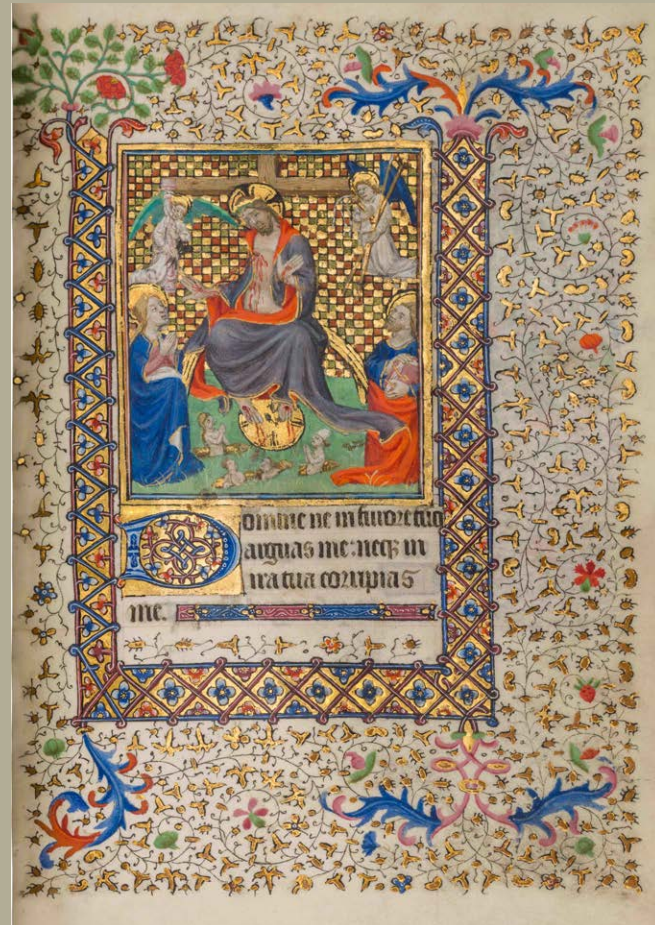 Domine ne in furore tuo
arguas me: neq; in
ira tua corripias
me.